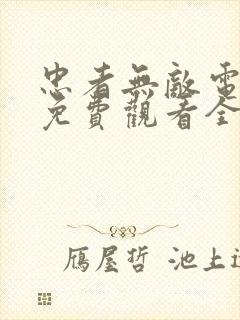 忠者無敵電
免費觀看全
鴈屋哲 池上辽